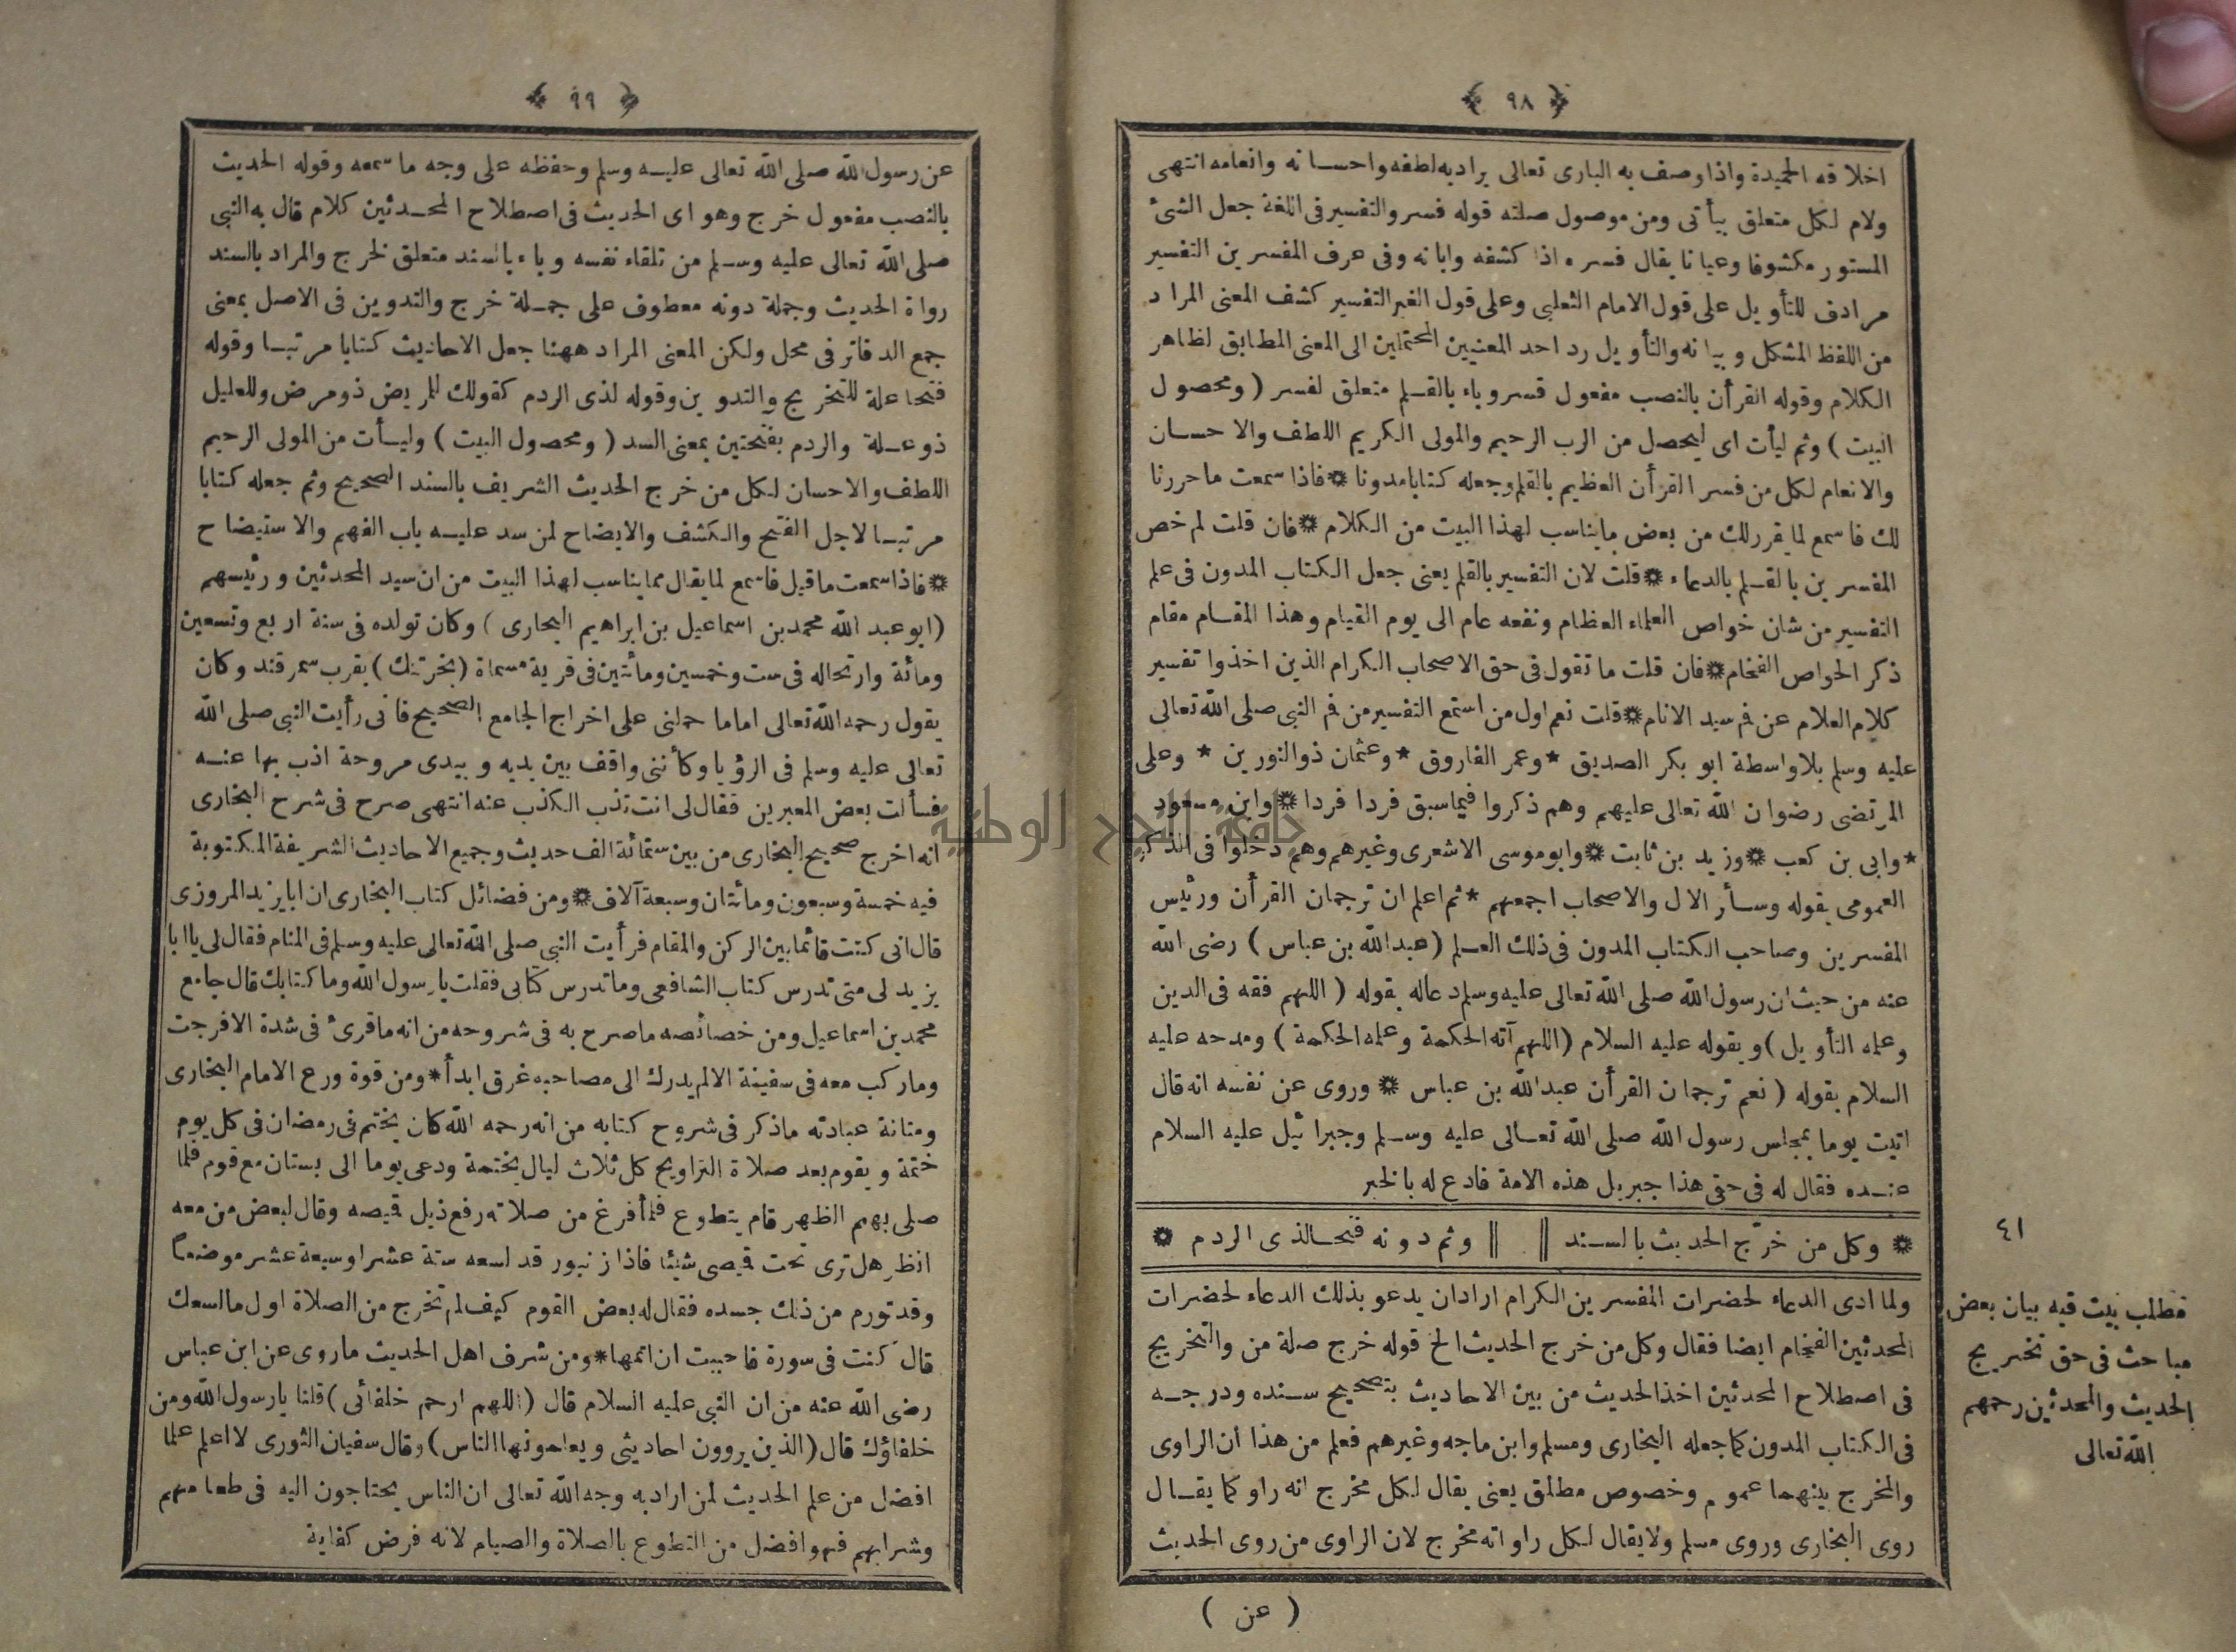 ﴿ ٩٨ ﴾
اخلاقه الحميدة واذا وصف به البارى تعالى يراد به لطفه واحسانه وانعامه انتهى
ولام لكل متعلق بيأتى ومن موصول صلته قوله فسر والتفسير فى اللغة جعل الشئ
المستور مكشوفا وعيانا يقال فسره اذا كشفه وابانه وفى عرف المفسرين التفسير
مرادف للتأويل على قول الامام الثعلبى وعلى قول الغير التفسير كشف المعنى المراد
من اللفظ المشكل وبيانه والتأويل رد احد المعنيين المحتملين الى المعنى المطابق لظاهر
الكلام وقوله القرأن بالنصب مفعول فسر وباء بالقلم متعلق لفسر ( ومحصول
البيت ) وثم ليأت اى ليحصل من الرب الرحيم والمولى الكريم اللطف والاحسان
والانعام لكل من فسر القرأن العظيم بالقلم وجعله كتابا مدونا * فاذا سمعت ما حررنا
لك فاسمع لما يقرر لك من بعض ما يناسب لهذا البيت من الكلام * فان قلت لم خص
المفسرين بالقلم بالدعاء * قلت لان التفسير بالقلم يعنى جعل الكتاب المدون فى علم
التفسير من شان خواص العلماء العظام ونفعه عام الى يوم القيام وهذا المقام مقام
ذكر الخواص الفخام * فان قلت ما تقول فى حق الاصحاب الكرام الذين اخذوا تفسير
كلام العلام عن فم سيد الانام * قلت نعم اول من استمع التفسير من فم النبى صلى الله تعالى
عليه وسلم بلا واسطة ابو بكر الصديق * وعمر الفاروق * وعثمان ذو النورين * وعلى
المرتضى رضوان الله تعالى عليهم وهم ذكروا فيما سبق فردا فردا * وابن مسعود
* وابى بن كعب * وزيد بن ثابت * وابو موسى الاشعرى وغيرهم وهم دخلوا فى الذكر
العمومى بقوله وسائر الال والاصحاب اجمعهم * ثم اعلم ان ترجمان القرأن ورئيس
المفسرين وصاحب الكتاب المدون فى ذلك العلم ( عبد الله بن عباس ) رضى الله
عنه من حيث ان رسول الله صلى الله تعالى عليه وسلم دعاله بقوله ( اللهم فقه فى الدين
وعلمه التأويل ) وبقوله عليه السلام ( اللهم آته الحكمة وعلمه الحكمة ) ومدحه عليه
السلام بقوله ( نعم ترجمان القرأن عبد الله بن عباس * وروى عن نفسه انه قال
اتيت يوما بمجلس رسول الله صلى الله تعالى عليه وسلم وجبرائيل عليه السلام
عنده فقال له فى حقى هذا جبريل هذه الامة فادع له بالخبر
* وكل من خرّج الحديث بالسند || || وثم دونه فتحا لذى الردم *
٤١
ولما ادى الدعاء لحضرات المفسرين الكرام اراد ان يدعو بذلك الدعاء لحضرات
المحدثين الفخام ايضا فقال وكل من خرج الحديث الخ قوله خرج صلة من والتخريج
فى اصطلاح المحدثين اخذ الحديث من بين الاحاديث بتصحيح سنده ودرجه
فى الكتاب المدون كما جعله البخارى ومسلم وابن ماجه وغيرهم فعلم من هذا ان الراوى
والمخرج بينهما عموم وخصوص مطلق يعنى يقال لكل مخرج انه راو كما يقال
روى البخارى وروى مسلم ولا يقال لكل راو انه مخرج لان الراوى من روى الحديث
( عن )
مطلب بيت فيه بيان بعض
مباحث فى حق تخريج
الحديث والمحدثين رحمهم
الله تعالى
﴿ ٩٩ ﴾
عن رسول الله صلى الله تعالى عليه وسلم وحفظه على وجه ما سمعه وقوله الحديث
بالنصب مفعول خرج وهو اى الحديث فى اصطلاح المحدثين كلام قال به النبى
صلى الله تعالى عليه وسلم من تلقاء نفسه وباء بالسند متعلق لخرج والمراد بالسند
رواة الحديث وجملة دونه معطوف على جملة خرج والتدوين فى الاصل بمعنى
جمع الدفاتر فى محل ولكن المعنى المراد ههنا جعل الاحاديث كتابا مرتبا وقوله
فتحا علة للتخريج والتدوين وقوله لذى الردم كقولك للمريض ذو مرض وللعليل
ذو علة والردم بفتحتين بمعنى السد ( ومحصول البيت ) وليأت من المولى الرحيم
اللطف والاحسان لكل من خرج الحديث الشريف بالسند الصحيح وثم جعله كتابا
مرتبا لاجل الفتح والكشف والايضاح لمن سد عليه باب الفهم والاستيضاح
* فاذا سمعت ما قيل فاسمع لما يقال مما يناسب لهذا البيت من ان سيد المحدثين ورئيسهم
( ابو عبد الله محمد بن اسماعيل بن ابراهيم البخارى ) وكان تولده فى سنة اربع وتسعين
ومائة وارتحاله فى ست وخمسين ومأتين فى قرية مسماة ( بخرتنك ) بقرب سمرقند وكان
يقول رحمه الله تعالى اماما حملنى على اخراج الجامع الصحيح فانى رأيت النبى صلى الله
تعالى عليه وسلم فى الرؤيا وكأننى واقف بين يديه وبيدى مروحة اذب بها عنه
فسألت بعض المعبرين فقال لى انت تذب الكذب عنه انتهى صرح فى شرح البخارى
انه اخرج صحيح البخارى من بين ستمائة الف حديث وجميع الاحاديث الشريفة المكتوبة
فيه خمسة وسبعون ومائتان وسبعة آلاف * ومن فضائل كتاب البخارى ان ابا يزيد المروزى
قال انى كنت قائما بين الركن والمقام فرأيت النبى صلى الله تعالى عليه وسلم فى المنام فقال لى يا ابا
يزيد لى متى تدرس كتاب الشافعى وما تدرس كتابى فقلت يا رسول الله وما كتابك قال جامع
محمد بن اسماعيل ومن خصائصه ما صرح به فى شروحه من انه ما قرئ فى شدة الا فرجت
وما ركب معه فى سفينة الا لم يدرك الى مصاحبه غرق ابدأ * ومن قوة ورع الامام البخارى
ومتانة عبادته ما ذكر فى شروح كتابه من انه رحمه الله كان يختم فى رمضان فى كل يوم
ختمة ويقوم بعد صلاة التراويح كل ثلاث ليال بختمة ودعى يوما الى بستان مع قوم فلما
صلى بهم الظهر قام يتطوع فلما فرغ من صلاته رفع ذيل قميصه وقال لبعض من معه
انظر هل ترى تحت قميصى شيئا فاذا زنبور قد لسعه ستة عشر او سبعة عشر موضعا
وقد تورم من ذلك جسده فقال له بعض القوم كيف لم تخرج من الصلاة اول ما السعك
قال كنت فى سورة فاحببت ان اتمها * ومن شرف اهل الحديث ما روى عن ابن عباس
رضى الله عنه من ان النبى عليه السلام قال ( اللهم ارحم خلفائى ) قلنا يا رسول الله ومن
خلفاؤك قال ( الذين يروون احاديثى ويعلمونها الناس ) وقال سفيان الثورى لا اعلم علما
افضل من علم الحديث لمن اراد به وجه الله تعالى ان الناس يحتاجون اليه فى طعامهم
وشرابهم فهو افضل من التطوع بالصلاة والصيام لانه فرض كفاية
جامعة النجاح الوطنية